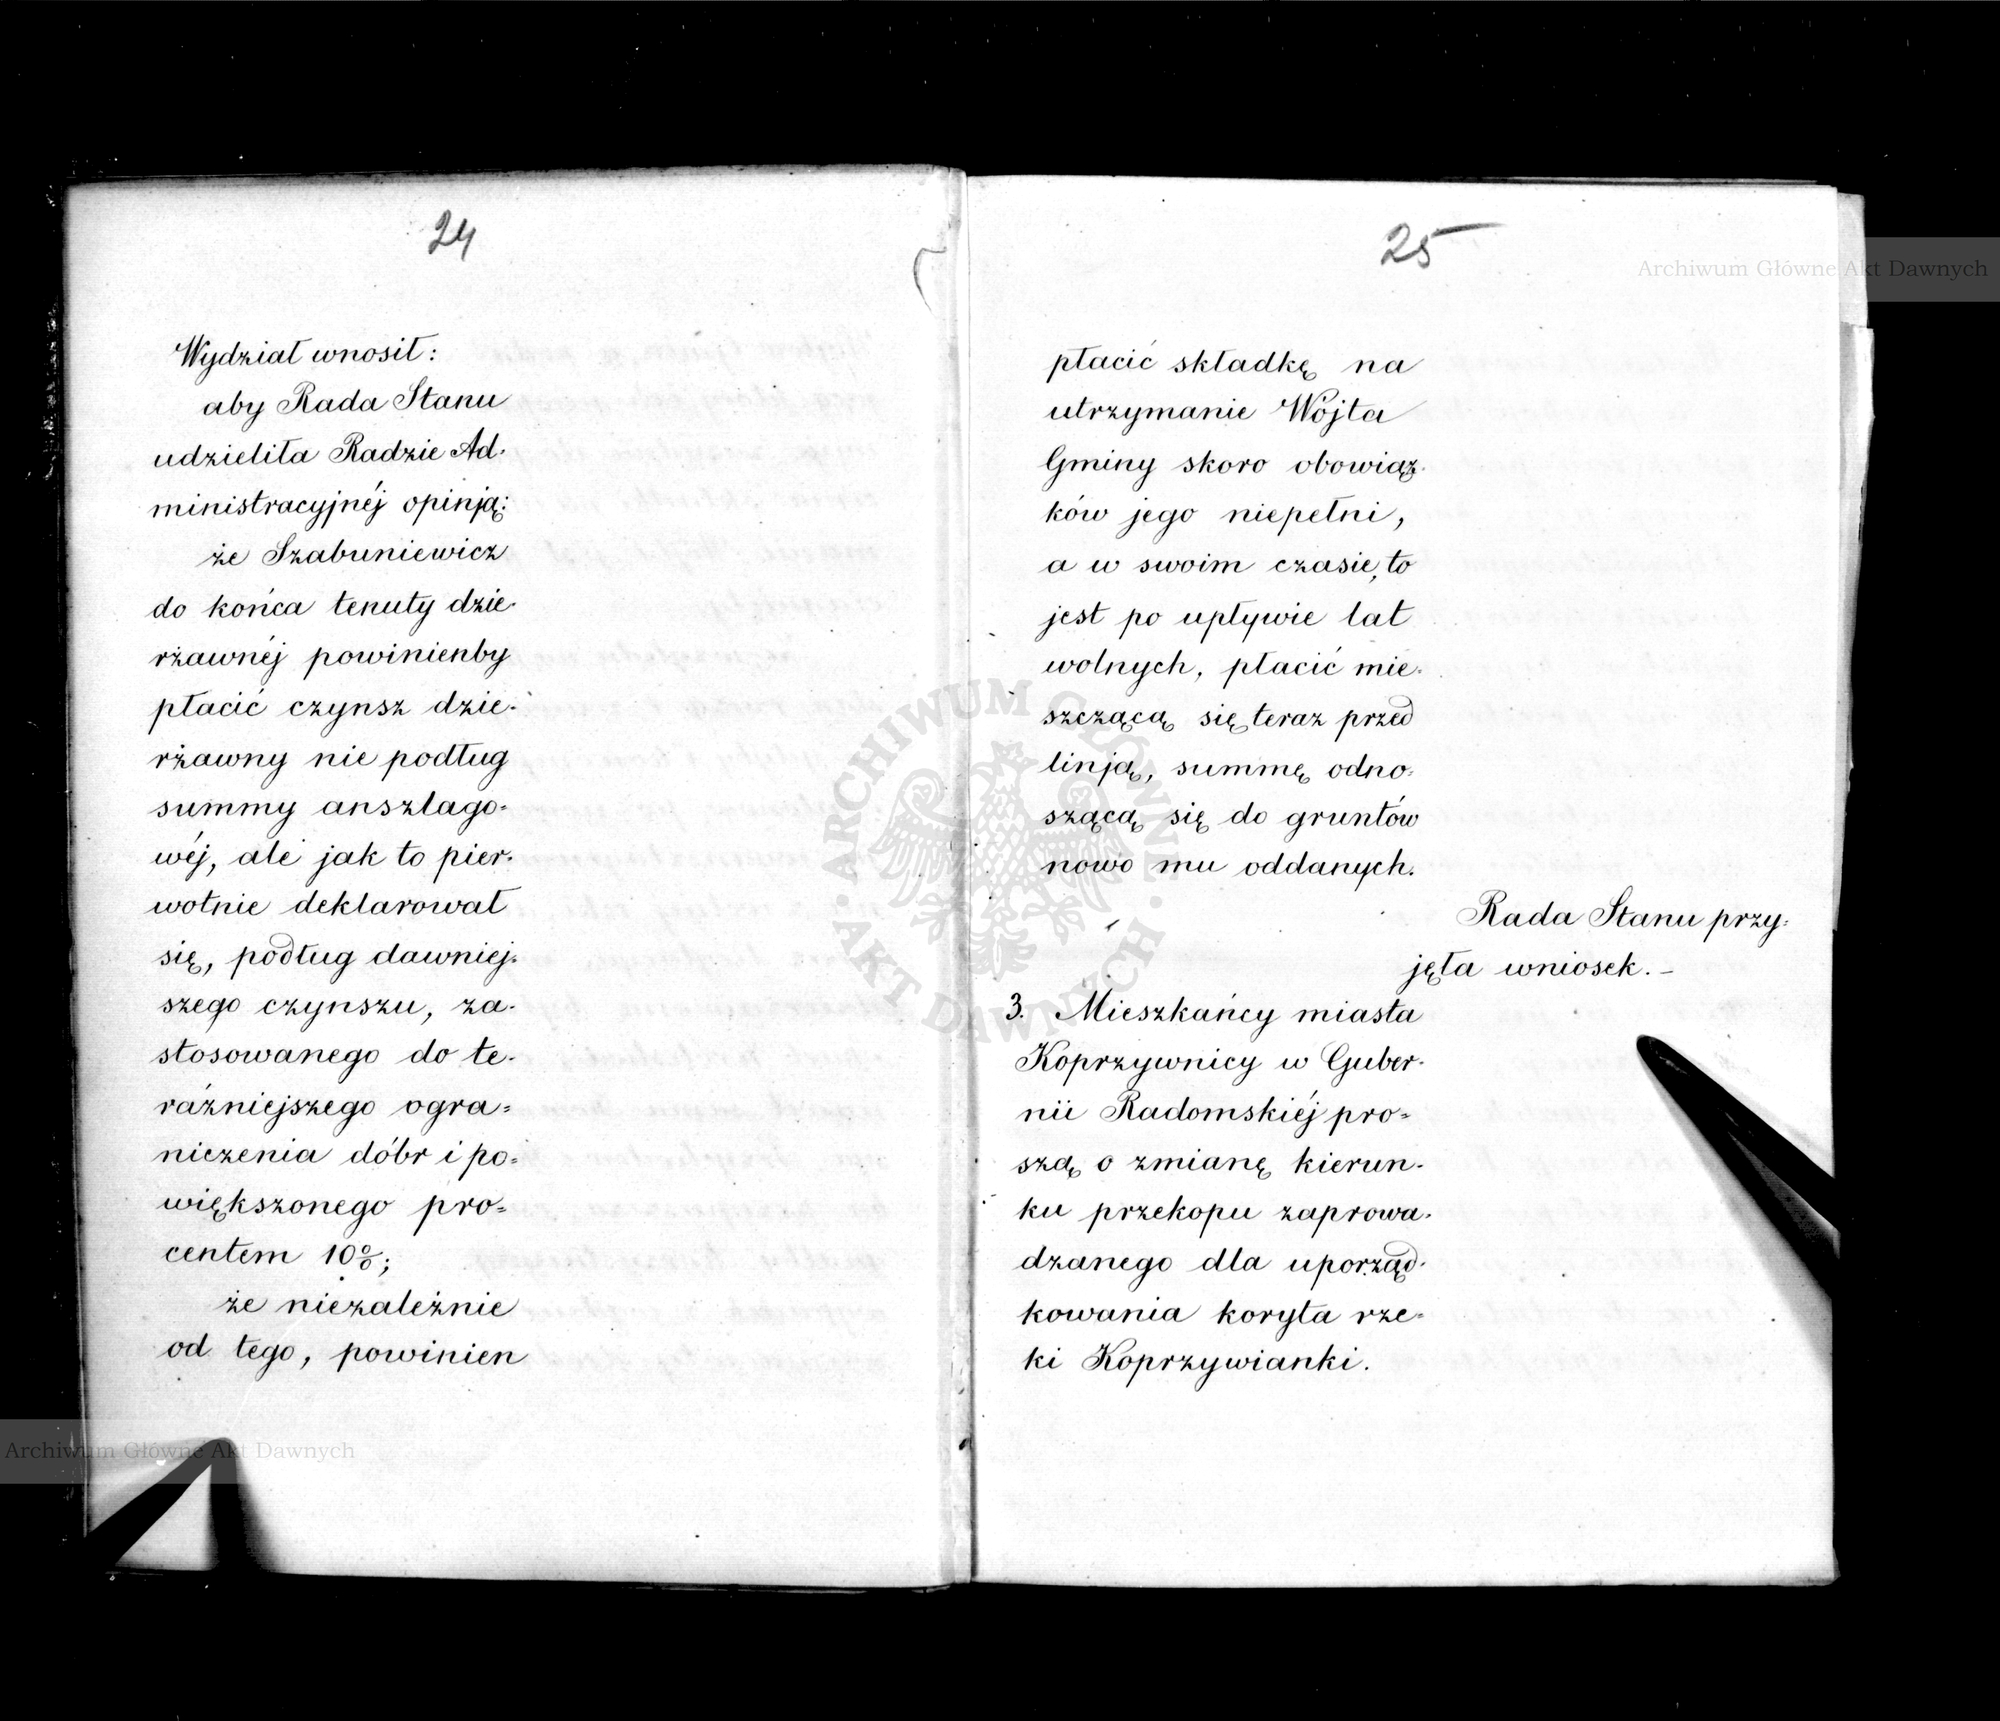 24
Wydział wnosił:
aby Rada Stanu
udzieliła Radzie Ad-
ministracyjnéj opinją:
że Szabuniewicz
do końca tenuty dzie-
rżawnéj powinienby
płacić czynsz dzie-
rżawny nie podług
summy anszlago-
wéj, ale jak to pier-
wotnie deklarował
się, podług dawniej-
szego czynszu, za-
stosowanego do te-
raźniejszego ogra-
niczenia dóbr i po-
większonego pro-
centem 10%;
że niezależnie
od tego, powinien
25
płacić składkę na
utrzymanie Wójta
Gminy skoro obowiąz-
ków jego niepełni,
a w swoim czasie, to
jest po upływie lat
wolnych, płacić mie-
szczącą się teraz przed
linją, summę odno-
szącą się do gruntów
nowo mu oddanych.
Rada Stanu przy-
jęła wniosek. –
3. Mieszkańcy miasta
Koprzywnicy w Guber-
nii Radomskiéj pro-
szą o zmianę kierun-
ku przekopu zaprowa-
dzanego dla uporząd-
kowania koryta rze-
ki Koprzywianki.
Archiwum Główne Akt Dawnych
Archiwum Główne Akt Dawnych
ARCHIWUM GŁÓWNE AKT DAWNYCH